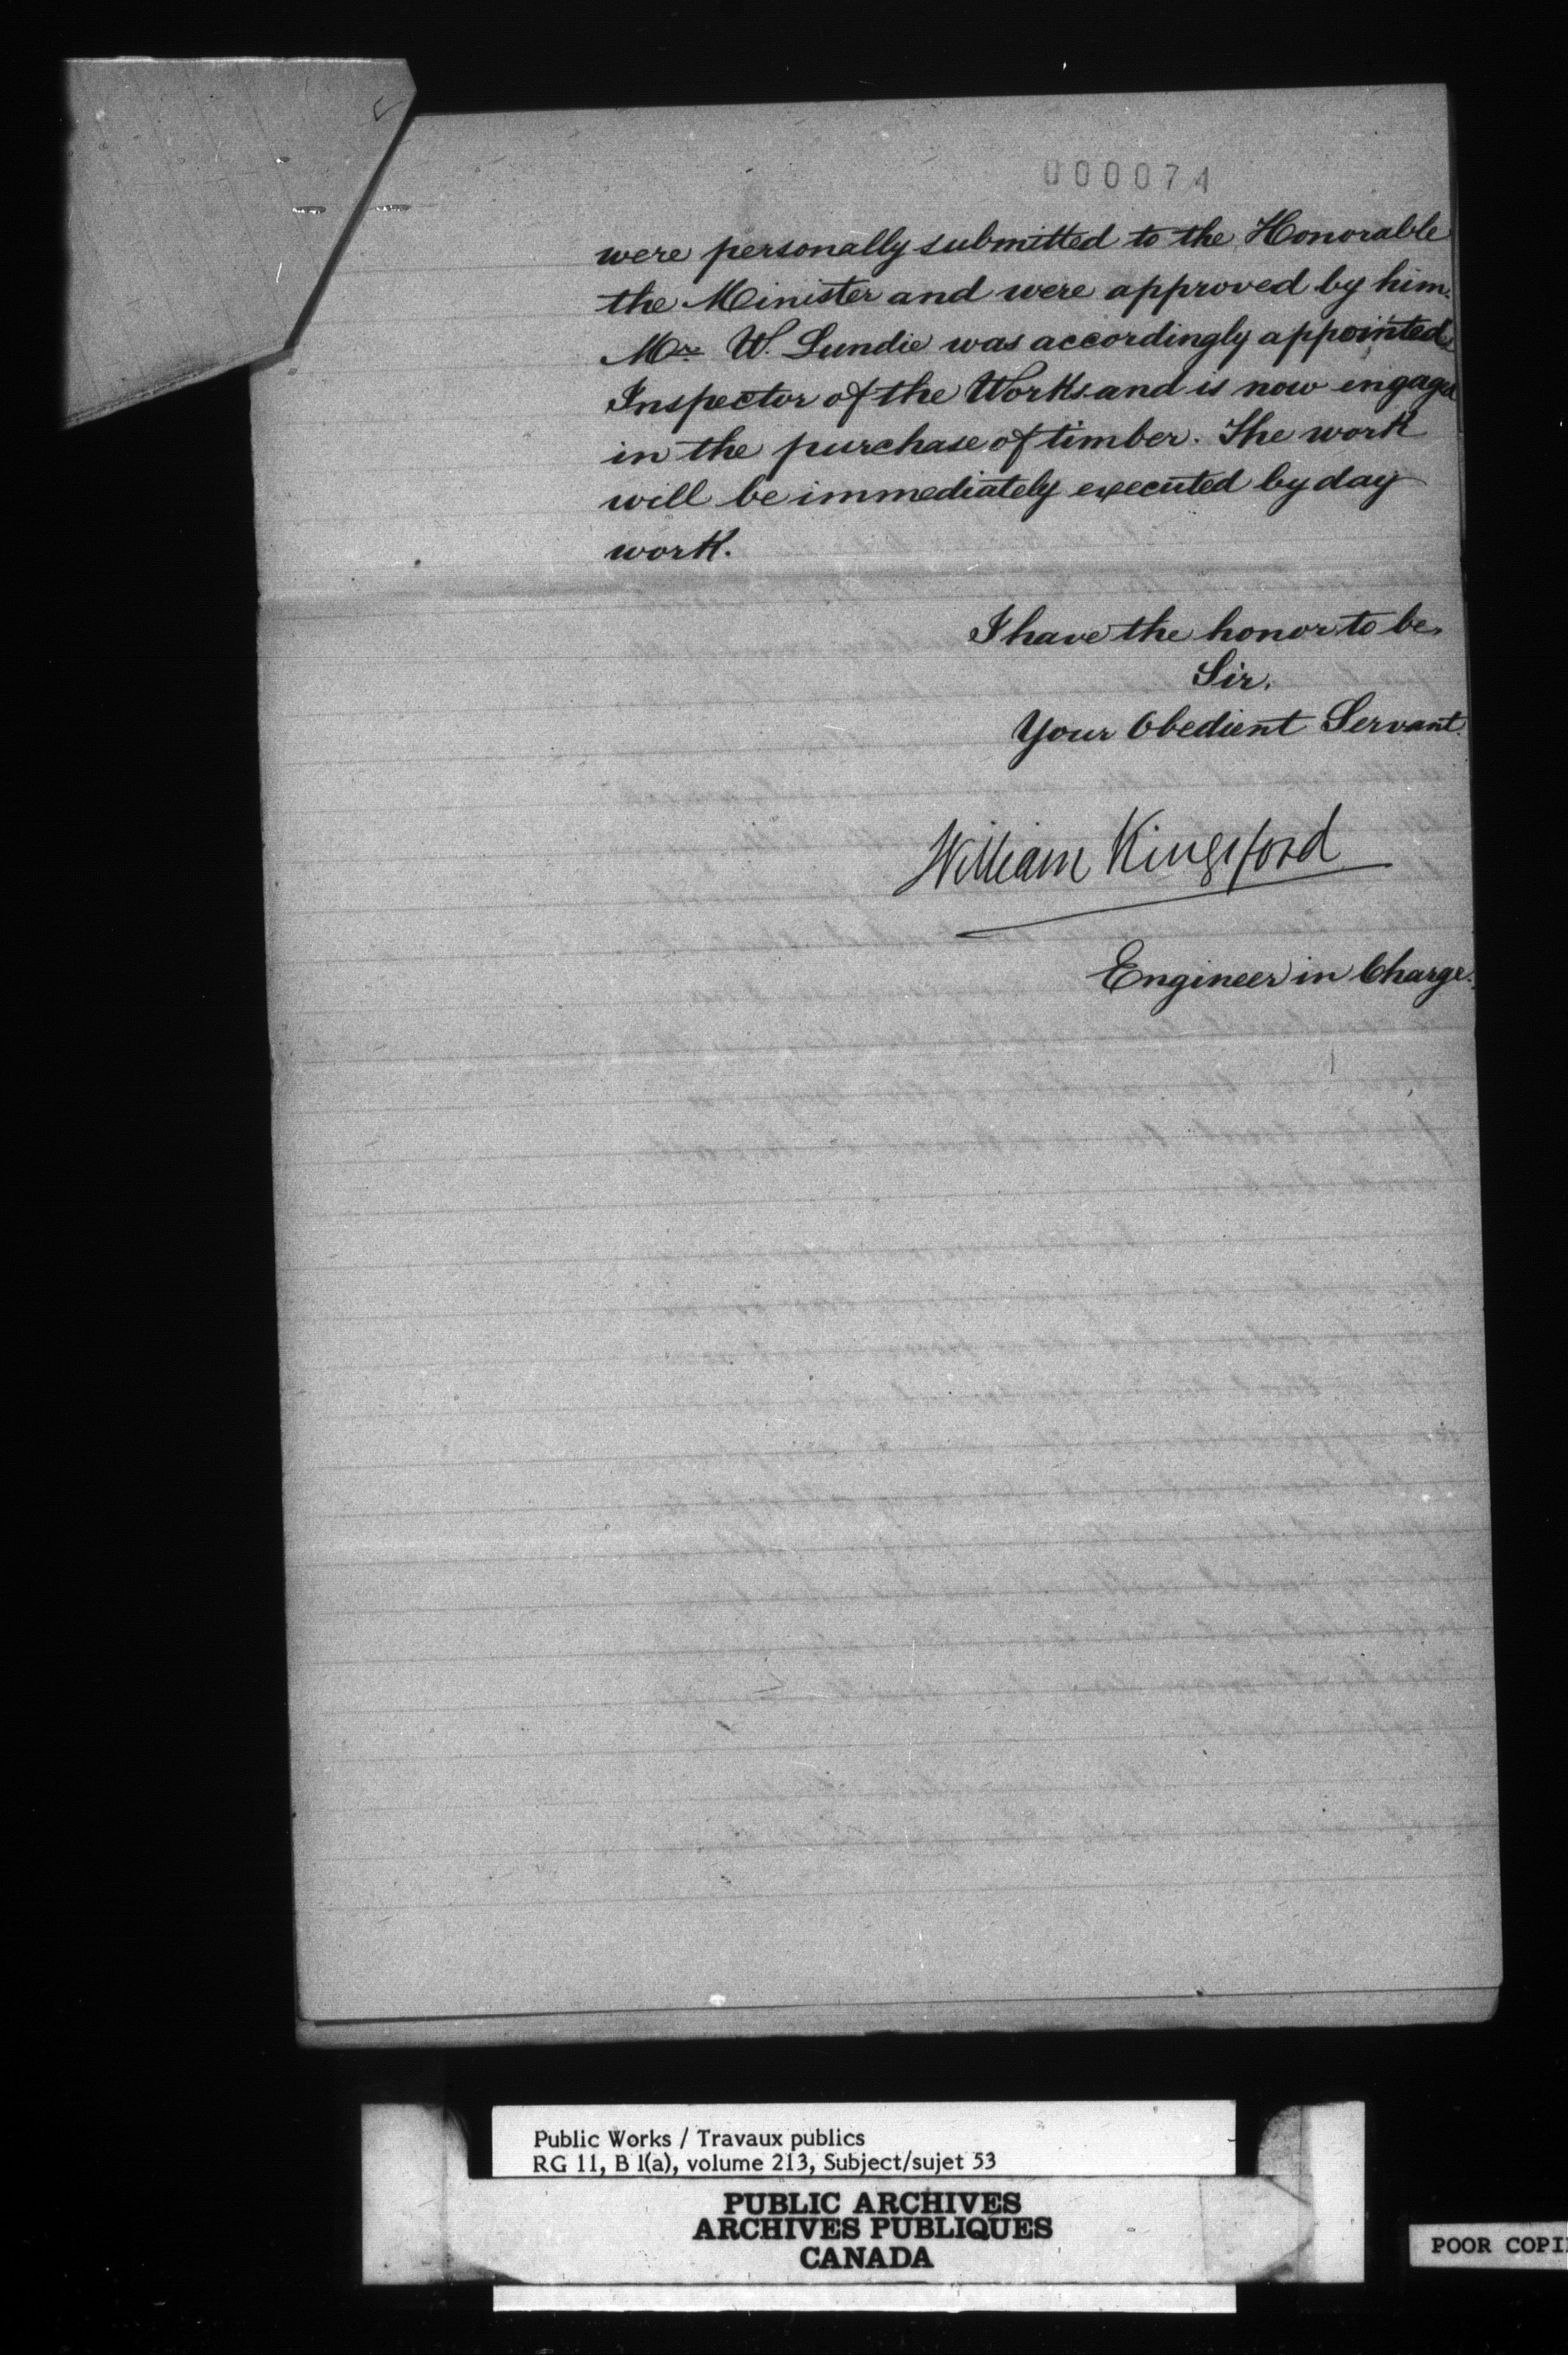 000074
were personally submitted to the Honorable
the Minister and were approved by him.
Mr. W. Lundie was accordingly appointed
Inspector of the Works and is now engaged
in the purchase of timber. The work
will be immediately executed by day
work.
I have the honor to be,
Sir,
Your Obedient Servant.
William Kingsford
Engineer in Charge.
Public Works / Travaux publics
RG 11, B 1(a), volume 213, Subject/sujet 53
PUBLIC ARCHIVES
ARCHIVES PUBLIQUES
CANADA
POOR COPI